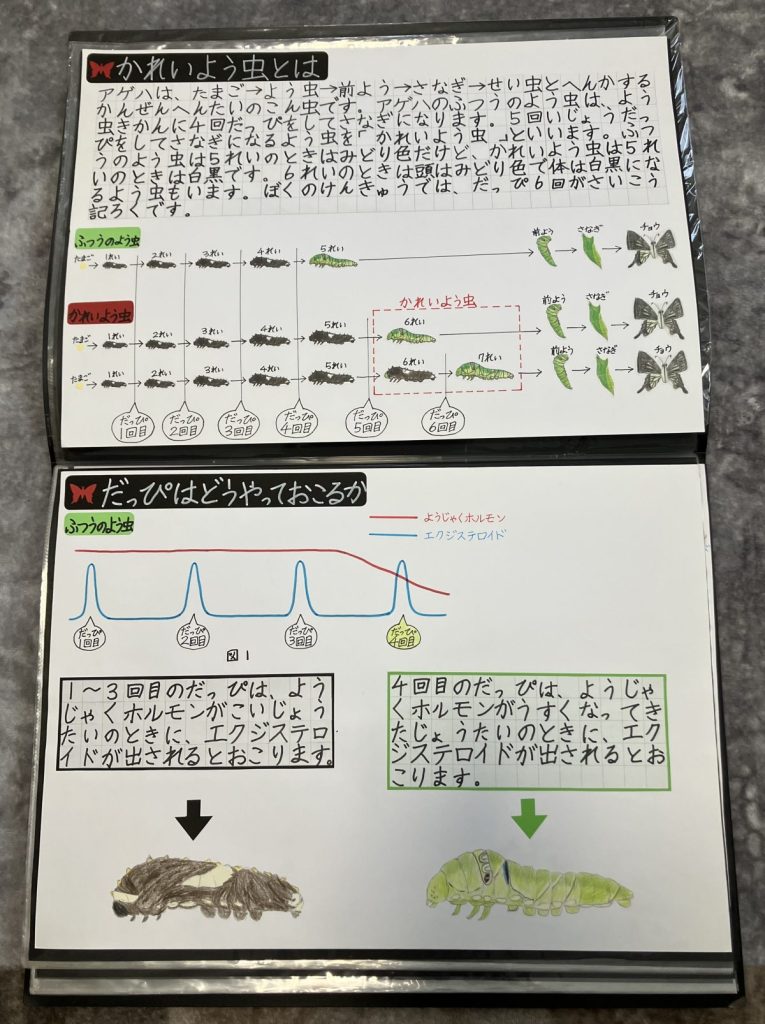 かれいよう虫とは
アゲハは、たまご→よう虫→前よう→さなぎ→せい虫とへんかする
かんぜんへんたいのこん虫です。アゲハのふつうのよう虫は、よう
虫きかんに4回だっぴをしてさなぎになります。5回いじょうだっ
ぴをしてさなぎになるよう虫を「かれいよう虫」といいます。ふつ
うのよう虫は5れいのときはみどり色だけど、かれいよう虫は5れ
いのときは白黒です。6れいのときは頭はみどり色で体は白黒にな
るよう虫もいます。ぼくのけんきゅうでは、だっぴ6回がさいこう
記ろくです。
ふつうのよう虫
たまご 1れい 2れい 3れい 4れい 5れい 前よう さなぎ チョウ
かれいよう虫
かれいよう虫
たまご 1れい 2れい 3れい 4れい 5れい 6れい 前よう さなぎ チョウ
たまご 1れい 2れい 3れい 4れい 5れい 6れい 7れい 前よう さなぎ チョウ
だっぴ 1回目
だっぴ 2回目
だっぴ 3回目
だっぴ 4回目
だっぴ 5回目
だっぴ 6回目
だっぴはどうやっておこるか
ふつうのよう虫
ようじゃくホルモン
エクジステロイド
だっぴ 1回目
だっぴ 2回目
だっぴ 3回目
だっぴ 4回目
図1
1〜3回目のだっぴは、よう
じゃくホルモンがこいじょう
たいのときに、エクジステロ
イドが出されるとおこります。
4回目のだっぴは、ようじゃ
くホルモンがうすくなってき
たじょうたいのときに、エク
ジステロイドが出されるとお
こります。